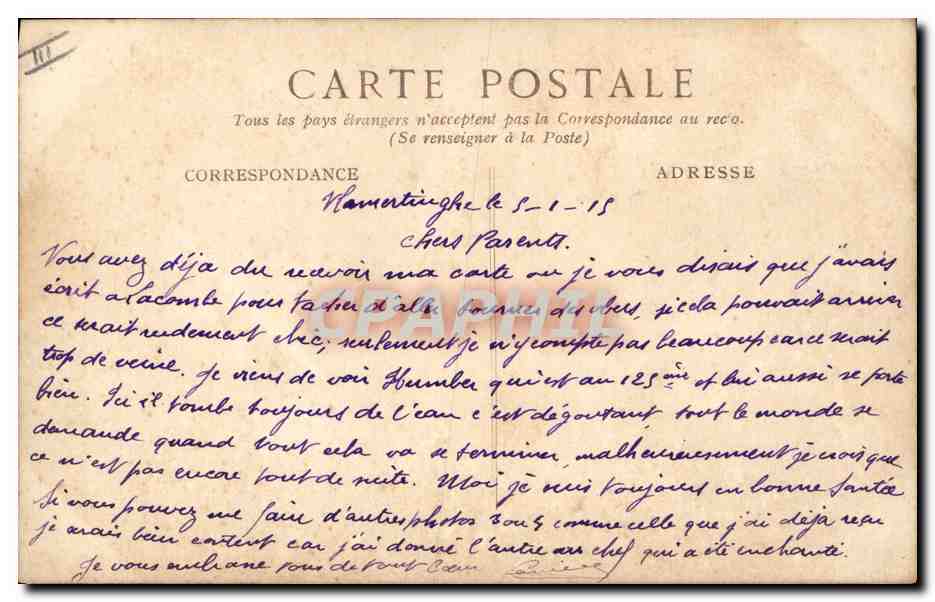 CARTE POSTALE
Tous les pays étrangers n'acceptent pas la Correspondance au recto.
(Se renseigner à la Poste)
CORRESPONDANCE
ADRESSE
Vlamertinghe le 5-1-15
Chers Parents.
Vous avez déja du recevoir ma carte ou je vous disais que j'avais
écrit a Lacombe pour tacher d'aller tourner des obus, si cela pouvait arriver
ce serait rudement chic; seulement je n'y compte pas beaucoup car ce serait
trop de veine. Je viens de voir Humber qui est au 125ème et lui aussi se porte
bien. Ici il tombe toujours de l'eau c'est dégoutant, tout le monde se
demande quand tout cela va se terminer, malheureusement je crois que
ce n'est pas encore tout de suite. Moi je suis toujours en bonne Santée
Si vous pouvez me faire d'autres photos 3 ou 4 comme celle que j'ai déjà reçu
je serais bien content car j'ai donné l'autre au chef qui a été enchanté.
Je vous embrasse tous de tout Cœur
CPAPHIL